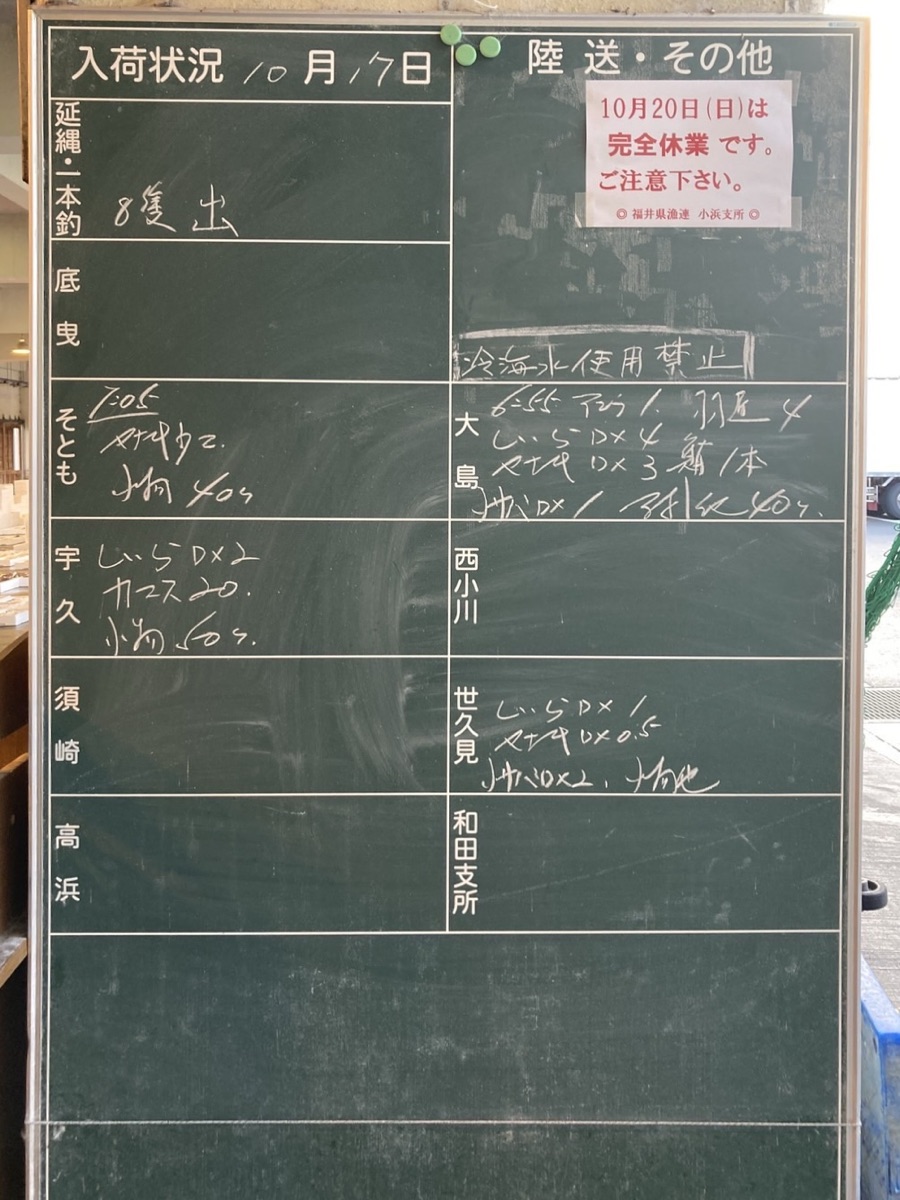 入荷状況 10月17日
陸送・その他
10月20日(日)は
完全休業です。
ご注意下さい。
◎ 福井県漁連 小浜支所 ◎
延縄・一本釣
8隻 出
底曳
冷海水使用禁止
そとも
7:05
小物 40ケ
大島
6:55 アジ 1.
しいら DX 4
DX 3 1本
DX 1 40ケ.
宇久
しいら DX 2
カマス 20.
小物 50ケ.
西小川
須崎
世久見
しいら DX 1
DX 0.5
DX 2. 小物他
高浜
和田支所